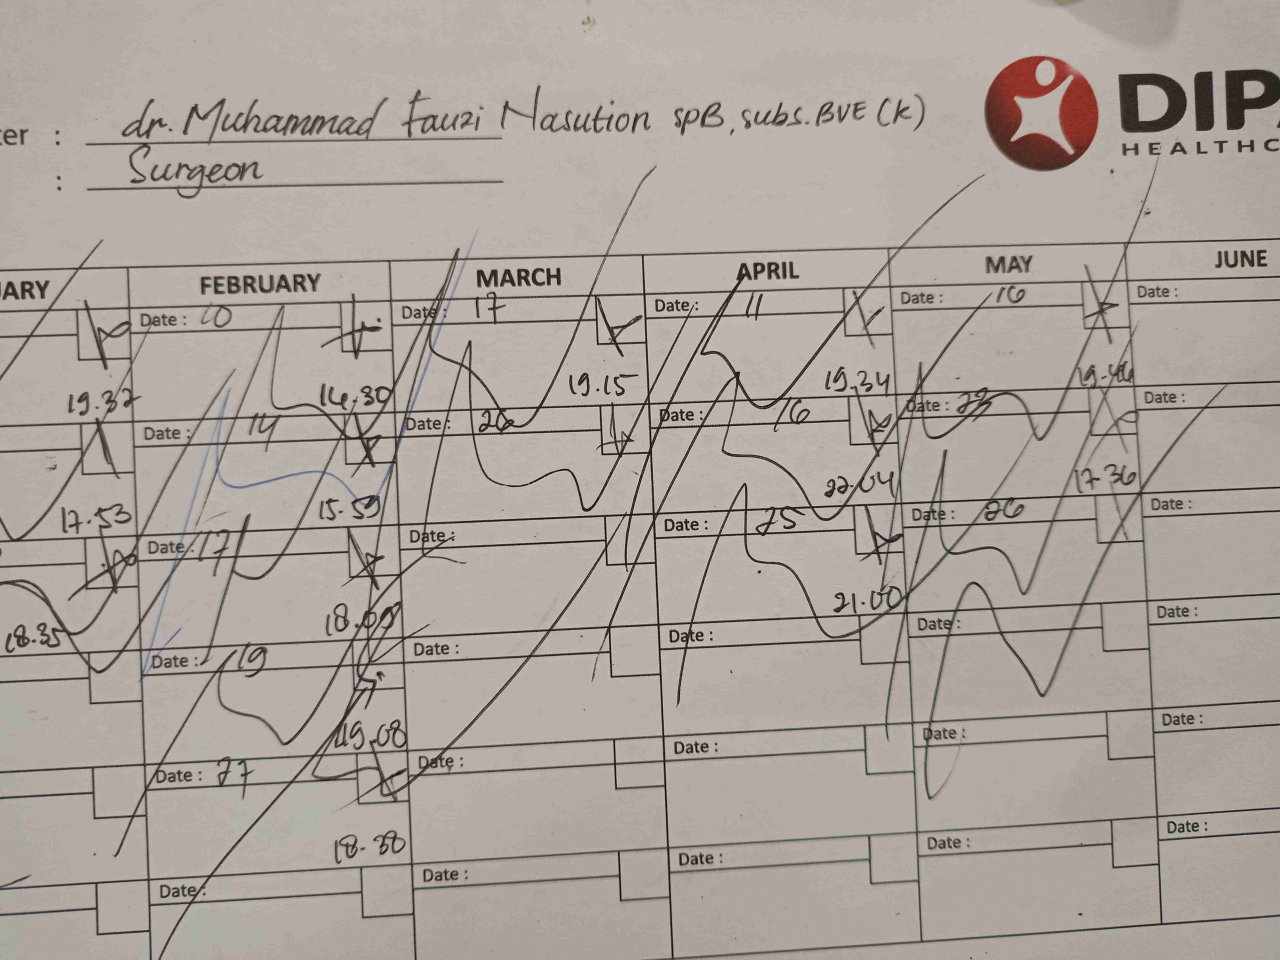 ter : dr. Muhammad Fauzi Nasution SpB, subs. BVE (K)
: Surgeon
DIPA
HEALTHC
UARY FEBRUARY MARCH APRIL MAY JUNE
Date : 10 Date : 17 Date : 11 Date : 16 Date :
19.32 14.30 19.15 19.34 19.46
Date : 14 Date : 26 Date : 16 Date : 23 Date :
17.53 15.59 22.04 17.36
Date : 17 Date : Date : 25 Date : 26 Date :
18.35 18.09 21.00
Date : 19 Date : Date : Date : Date :
19.08
Date : 27 Date : Date : Date : Date :
18.38
Date : Date : Date : Date : Date :